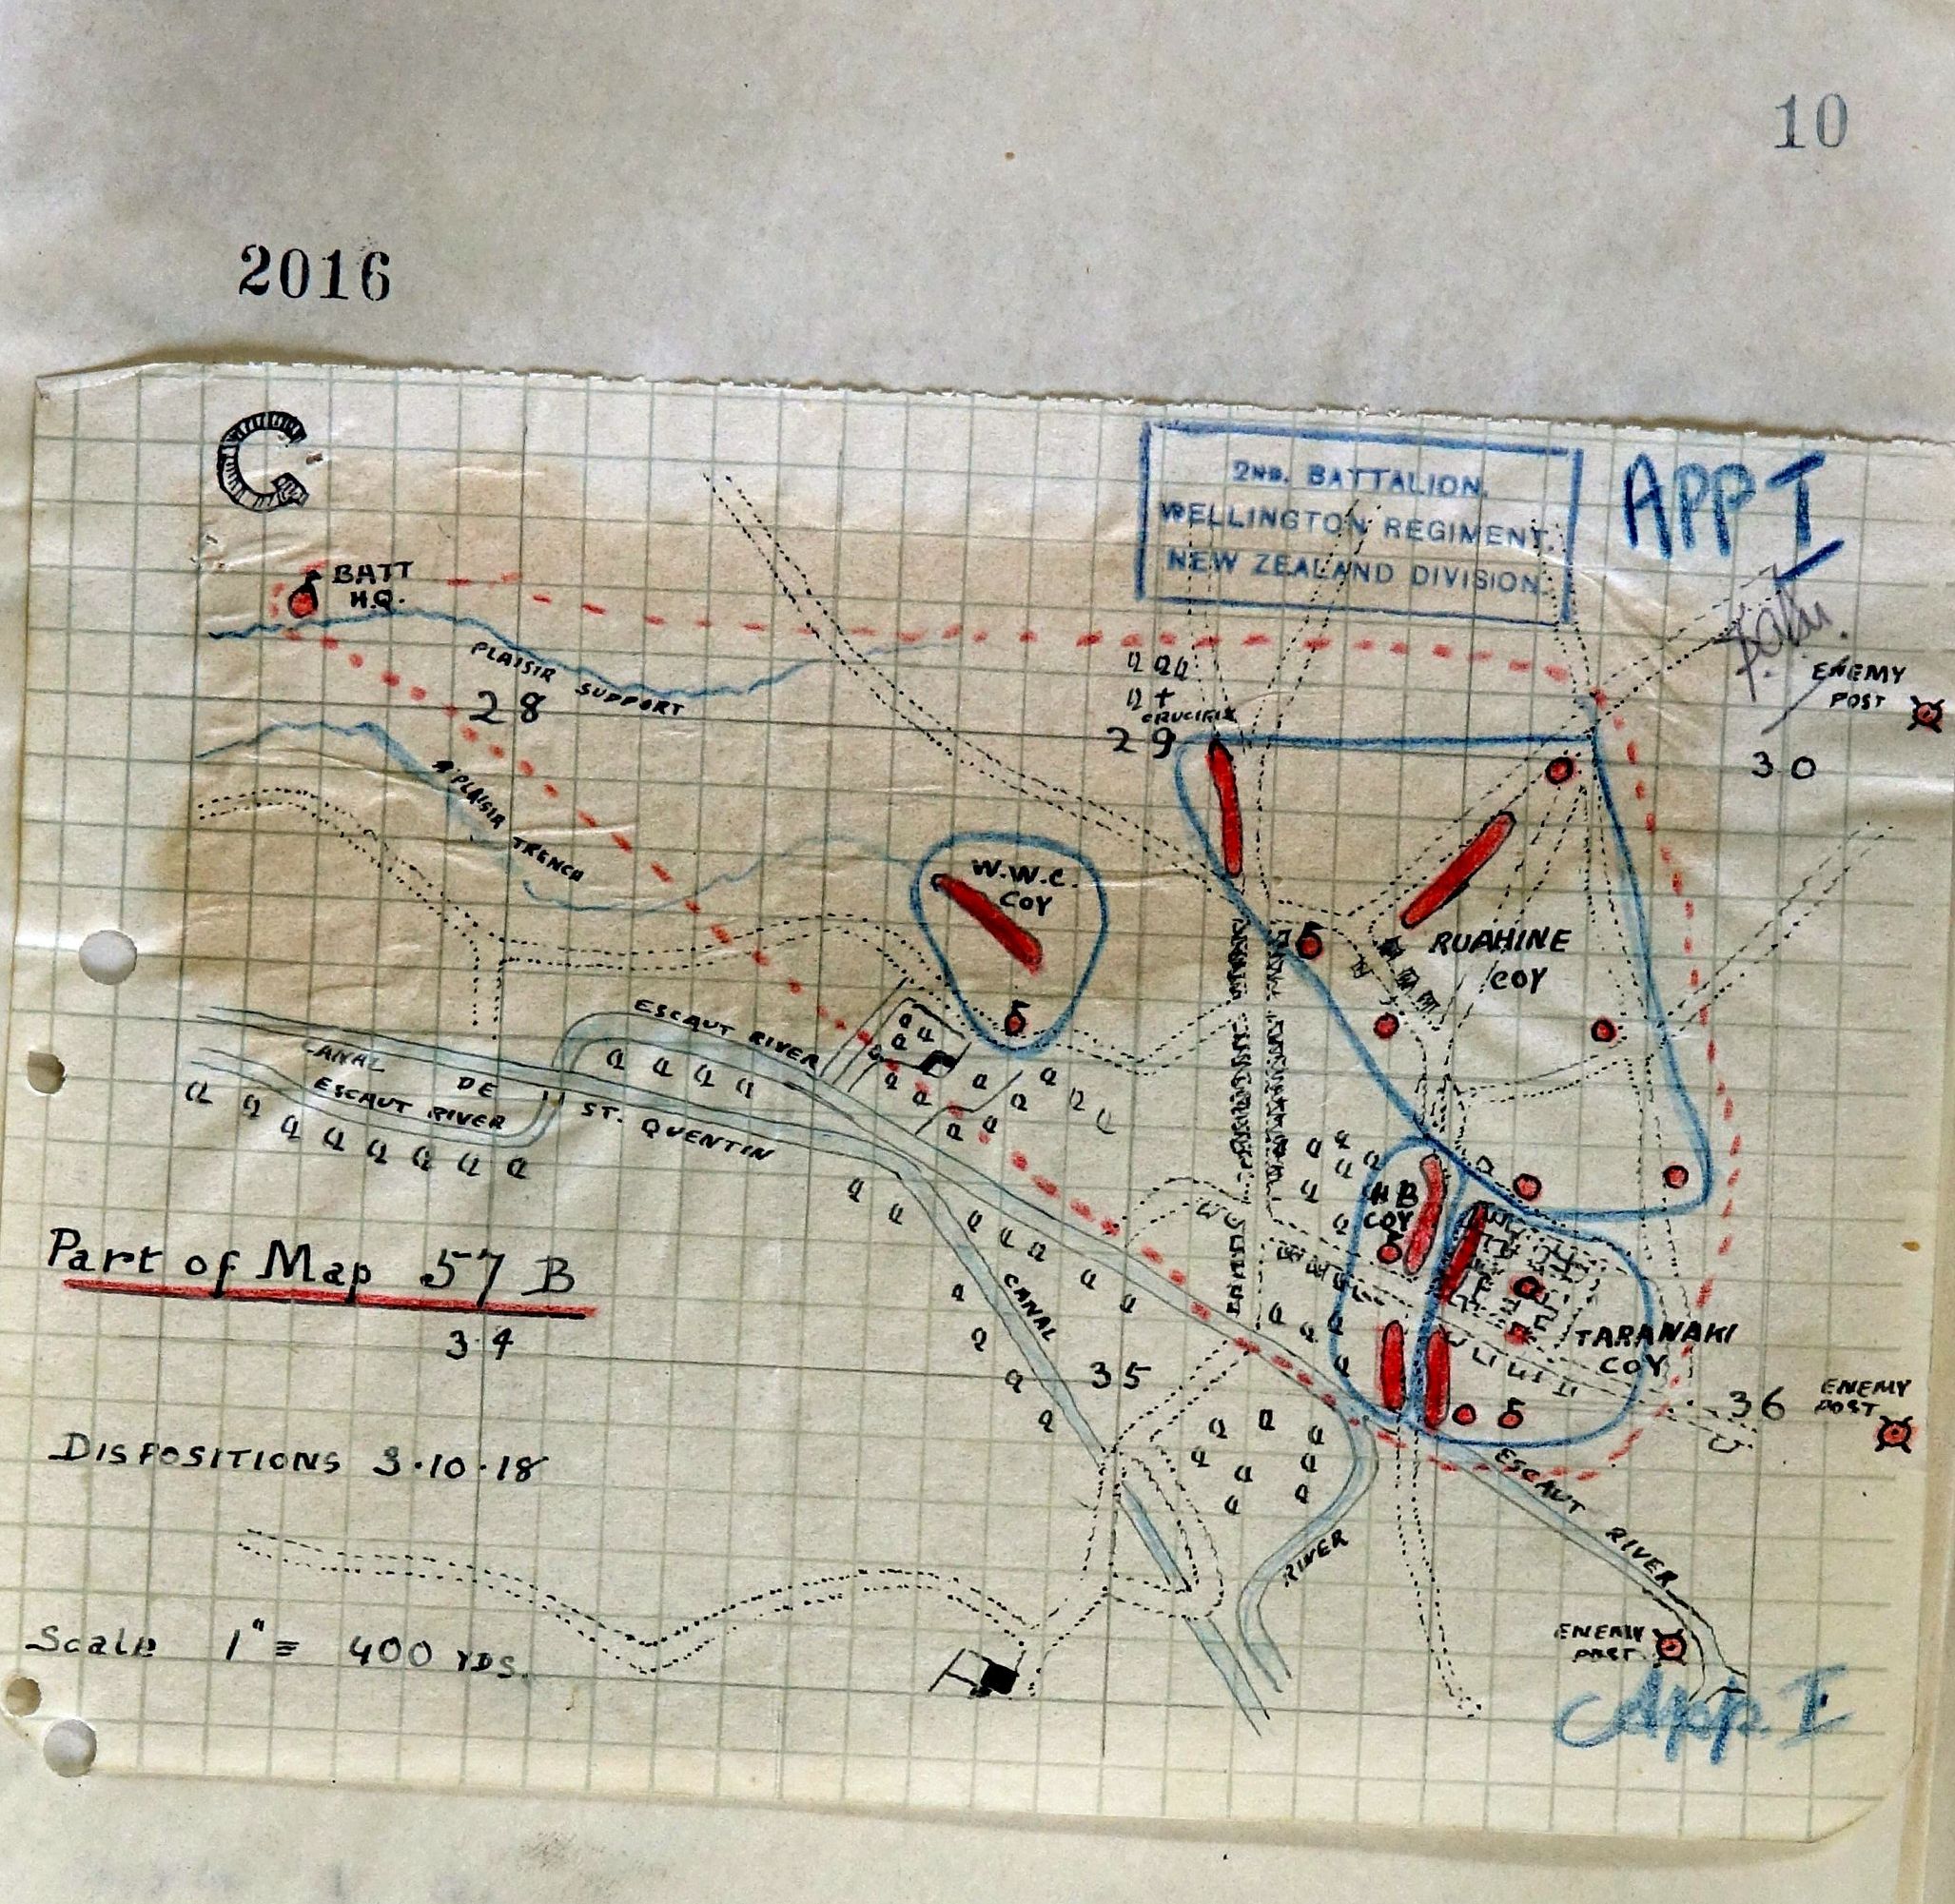 10
2016
C
2ND. BATTALION.
WELLINGTON REGIMENT.
NEW ZEALAND DIVISION.
APP I
BATT
H.Q.
PLAISIR SUPPORT
28
PLAISIR TRENCH
CRUCIFIX
29
ENEMY
POST
30
W.W.C.
COY
RUAHINE
COY
ESCAUT RIVER
CANAL DE ST. QUENTIN
ESCAUT RIVER
H B
COY
TARANAKI
COY
Part of Map 57 B
34
CANAL
35
36
ENEMY
POST
DISPOSITIONS 3.10.18
ESCAUT RIVER
RIVER
Scale 1" = 400 YDS.
ENEMY
POST
App. I